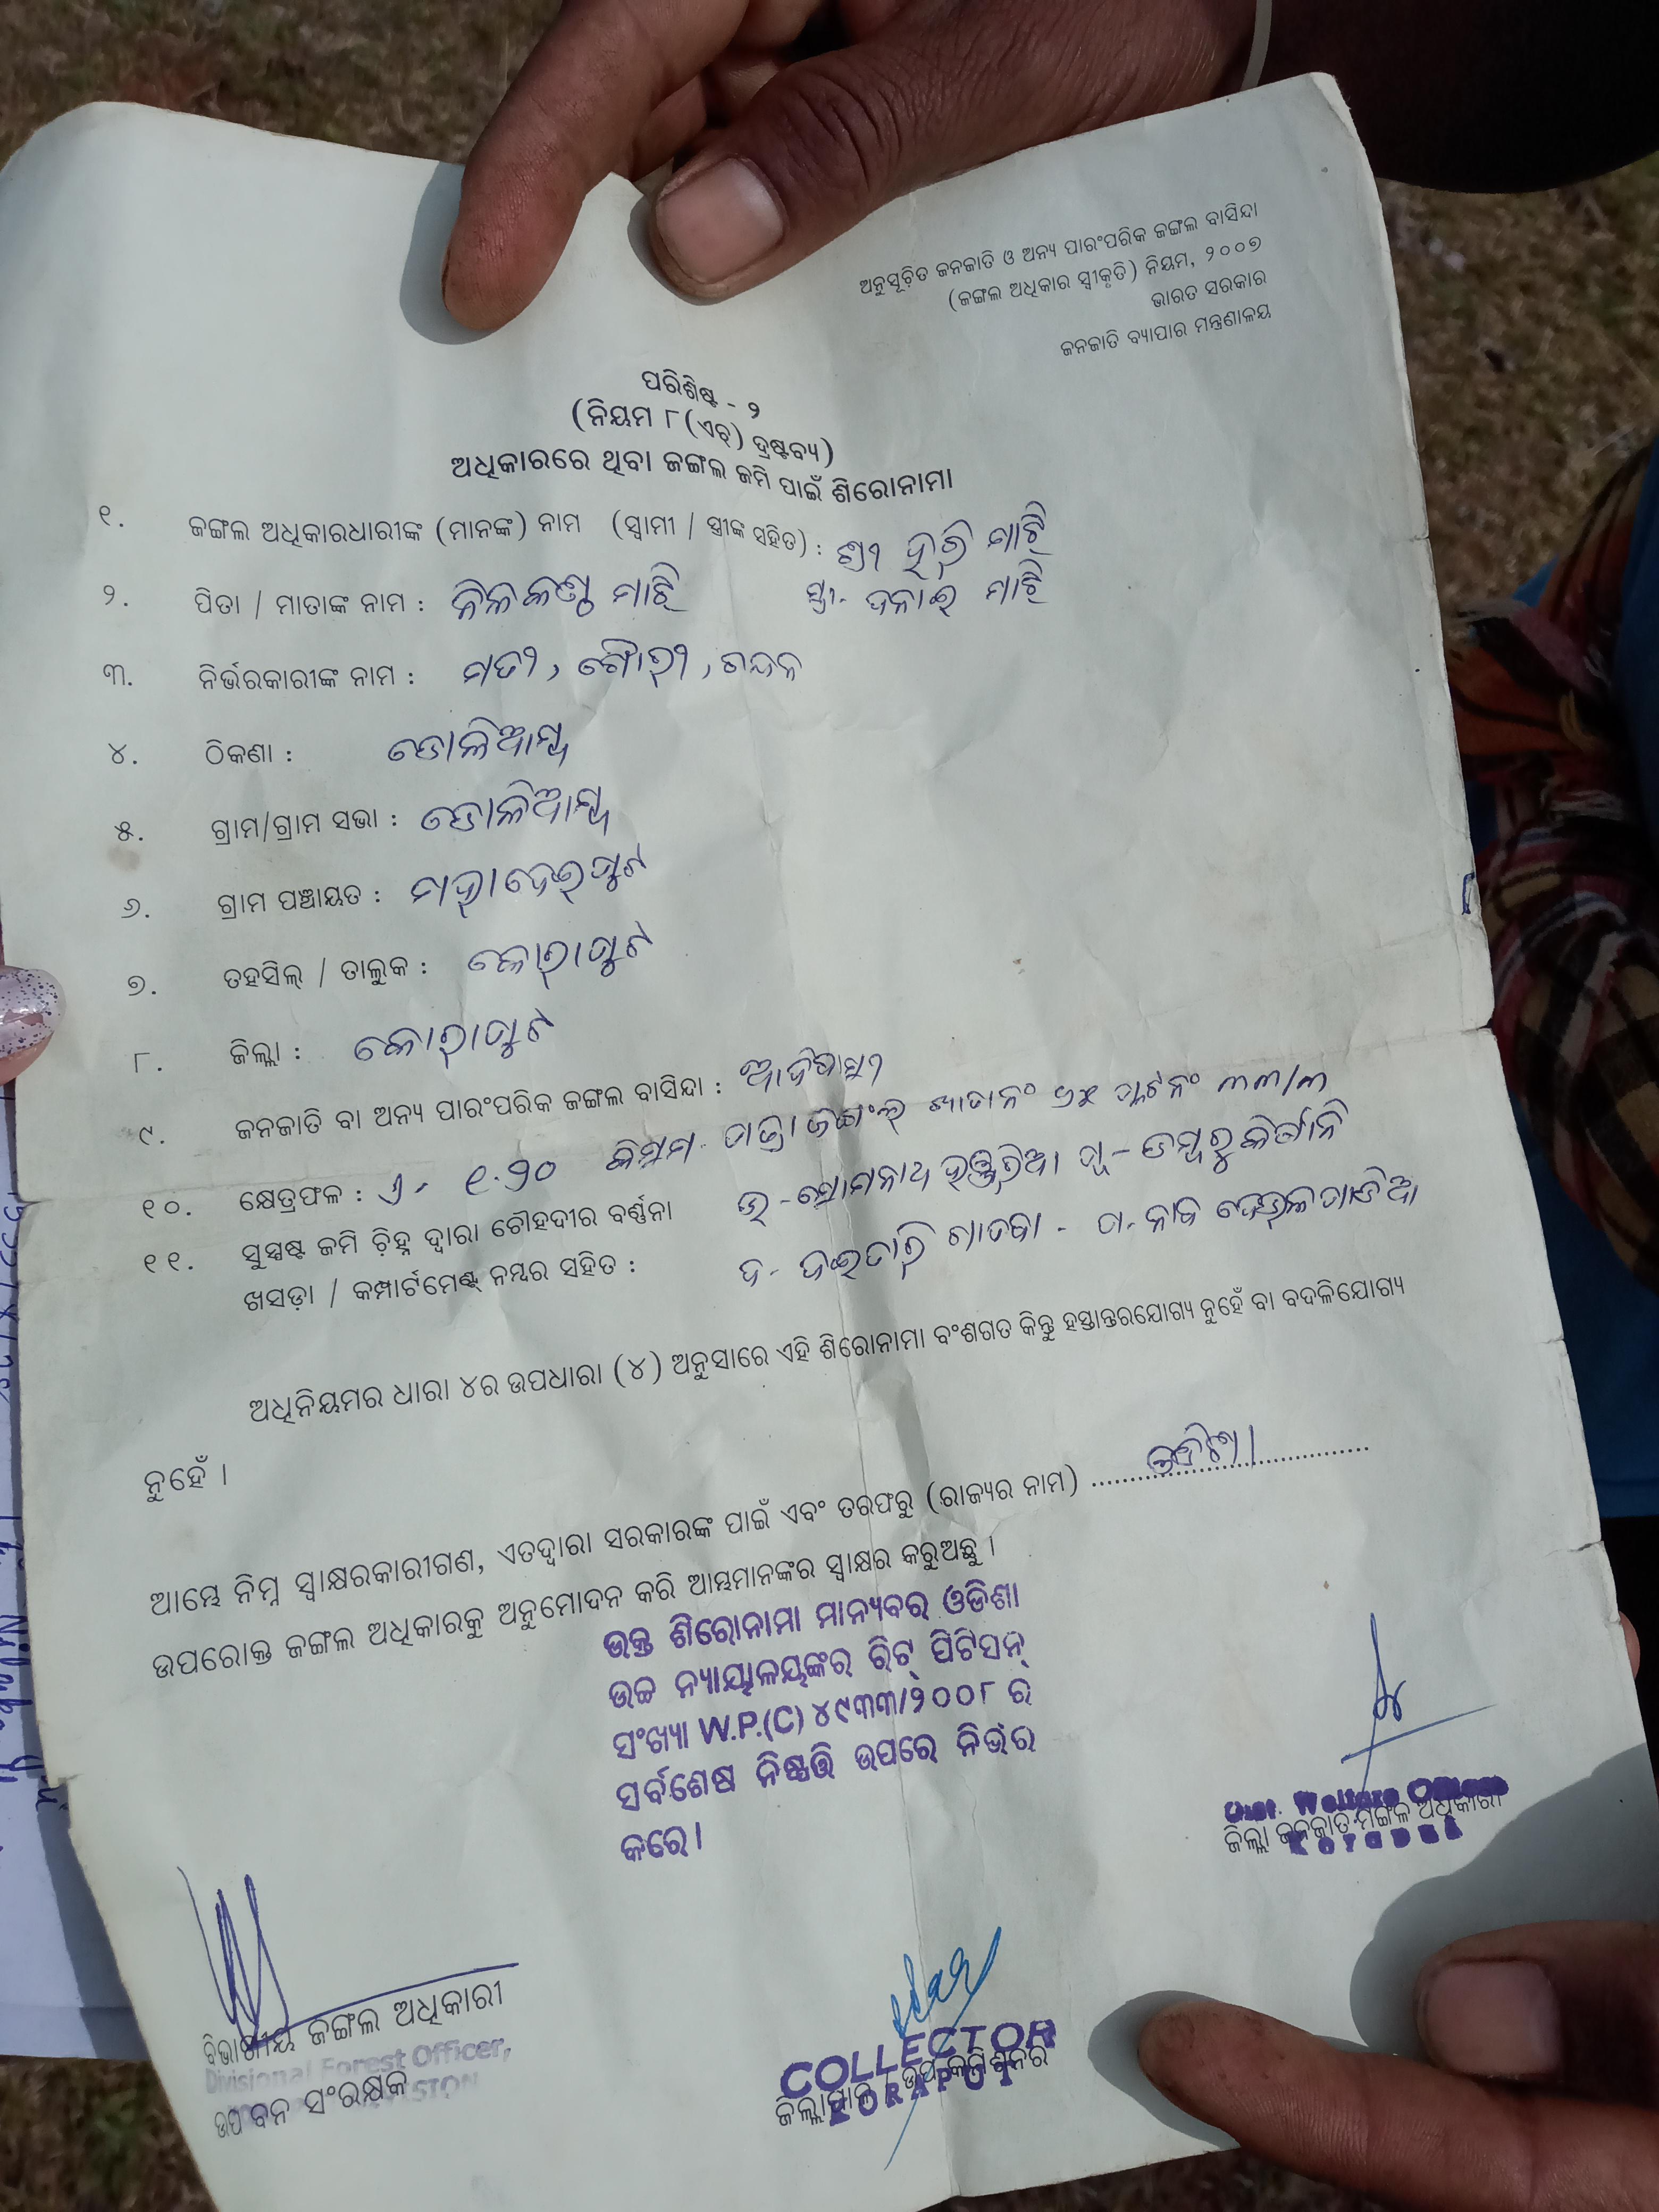 ଅନୁସୂଚିତ ଜନଜାତି ଓ ଅନ୍ୟ ପାରଂପରିକ ଜଙ୍ଗଲ ବାସିନ୍ଦା
(ଜଙ୍ଗଲ ଅଧିକାର ସ୍ୱୀକୃତି) ନିୟମ, ୨୦୦୭
ଭାରତ ସରକାର
ଜନଜାତି ବ୍ୟାପାର ମନ୍ତ୍ରଣାଳୟ
ପରିଶିଷ୍ଟ - ୨
(ନିୟମ ୮(ଏଚ୍) ଦ୍ରଷ୍ଟବ୍ୟ)
ଅଧିକାରରେ ଥିବା ଜଙ୍ଗଲ ଜମି ପାଇଁ ଶିରୋନାମା
୧. ଜଙ୍ଗଲ ଅଧିକାରଧାରୀଙ୍କ (ମାନଙ୍କ) ନାମ (ସ୍ୱାମୀ / ସ୍ତ୍ରୀଙ୍କ ସହିତ) : ଶ୍ରୀ ହରି ମାଝି
୨. ପିତା / ମାତାଙ୍କ ନାମ : ନିଳକଣ୍ଠ ମାଝି ସ୍ତ୍ରୀ- ମାଝି
୩. ନିର୍ଭରକାରୀଙ୍କ ନାମ : ଗୌରୀ,
୪. ଠିକଣା : ଡୋଲିଆମ୍ବ
୫. ଗ୍ରାମ/ଗ୍ରାମ ସଭା : ଡୋଲିଆମ୍ବ
୬. ଗ୍ରାମ ପଞ୍ଚାୟତ : ମହାଦେଇପୁଟ
୭. ତହସିଲ୍ / ତାଲୁକ : କୋରାପୁଟ
୮. ଜିଲ୍ଲା : କୋରାପୁଟ
୯. ଜନଜାତି ବା ଅନ୍ୟ ପାରଂପରିକ ଜଙ୍ଗଲ ବାସିନ୍ଦା : ଆଦିବାସୀ
୧୦. କ୍ଷେତ୍ରଫଳ : ଏ- ୧.୨୦ କିସମ- ଖାତାନଂ ପ୍ଲଟନଂ ୩୩/୩
୧୧. ସୁସ୍ପଷ୍ଟ ଜମି ଚିହ୍ନ ଦ୍ୱାରା ଚୌହଦୀର ବର୍ଣ୍ଣନା ଉ - ସୋମନାଥ
ଖସଡ଼ା / କମ୍ପାର୍ଟମେଣ୍ଟ ନମ୍ବର ସହିତ : ଦ-
ଅଧିନିୟମର ଧାରା ୪ର ଉପଧାରା (୪) ଅନୁସାରେ ଏହି ଶିରୋନାମା ବଂଶଗତ କିନ୍ତୁ ହସ୍ତାନ୍ତରଯୋଗ୍ୟ ନୁହେଁ ବା ବଦଳିଯୋଗ୍ୟ
ନୁହେଁ ।
ଆମ୍ଭେ ନିମ୍ନ ସ୍ୱାକ୍ଷରକାରୀଗଣ, ଏତଦ୍ୱାରା ସରକାରଙ୍କ ପାଇଁ ଏବଂ ତରଫରୁ (ରାଜ୍ୟର ନାମ) ..............
ଉପରୋକ୍ତ ଜଙ୍ଗଲ ଅଧିକାରକୁ ଅନୁମୋଦନ କରି ଆମ୍ଭମାନଙ୍କର ସ୍ୱାକ୍ଷର କରୁଅଛୁ ।
ଉକ୍ତ ଶିରୋନାମା ମାନ୍ୟବର ଓଡିଶା
ଉଚ୍ଚ ନ୍ୟାୟାଳୟଙ୍କର ରିଟ୍ ପିଟିସନ୍
ସଂଖ୍ୟା W.P.(C) ୪୯୩୩/୨୦୦୮ ର
ସର୍ବଶେଷ ନିଷ୍ପତ୍ତି ଉପରେ ନିର୍ଭର
କରେ।
Dist. Welfare Officer
ଜିଲ୍ଲା ଜନଜାତି ମଙ୍ଗଳ ଅଧିକାରୀ
ବିଭାଗୀୟ ଜଙ୍ଗଲ ଅଧିକାରୀ
Divisional Forest Officer,
ଉପ ବନ ସଂରକ୍ଷକ
COLLECTOR
ଜିଲ୍ଲାପାଳ / ଉପ କମିଶନର
KORAPUT